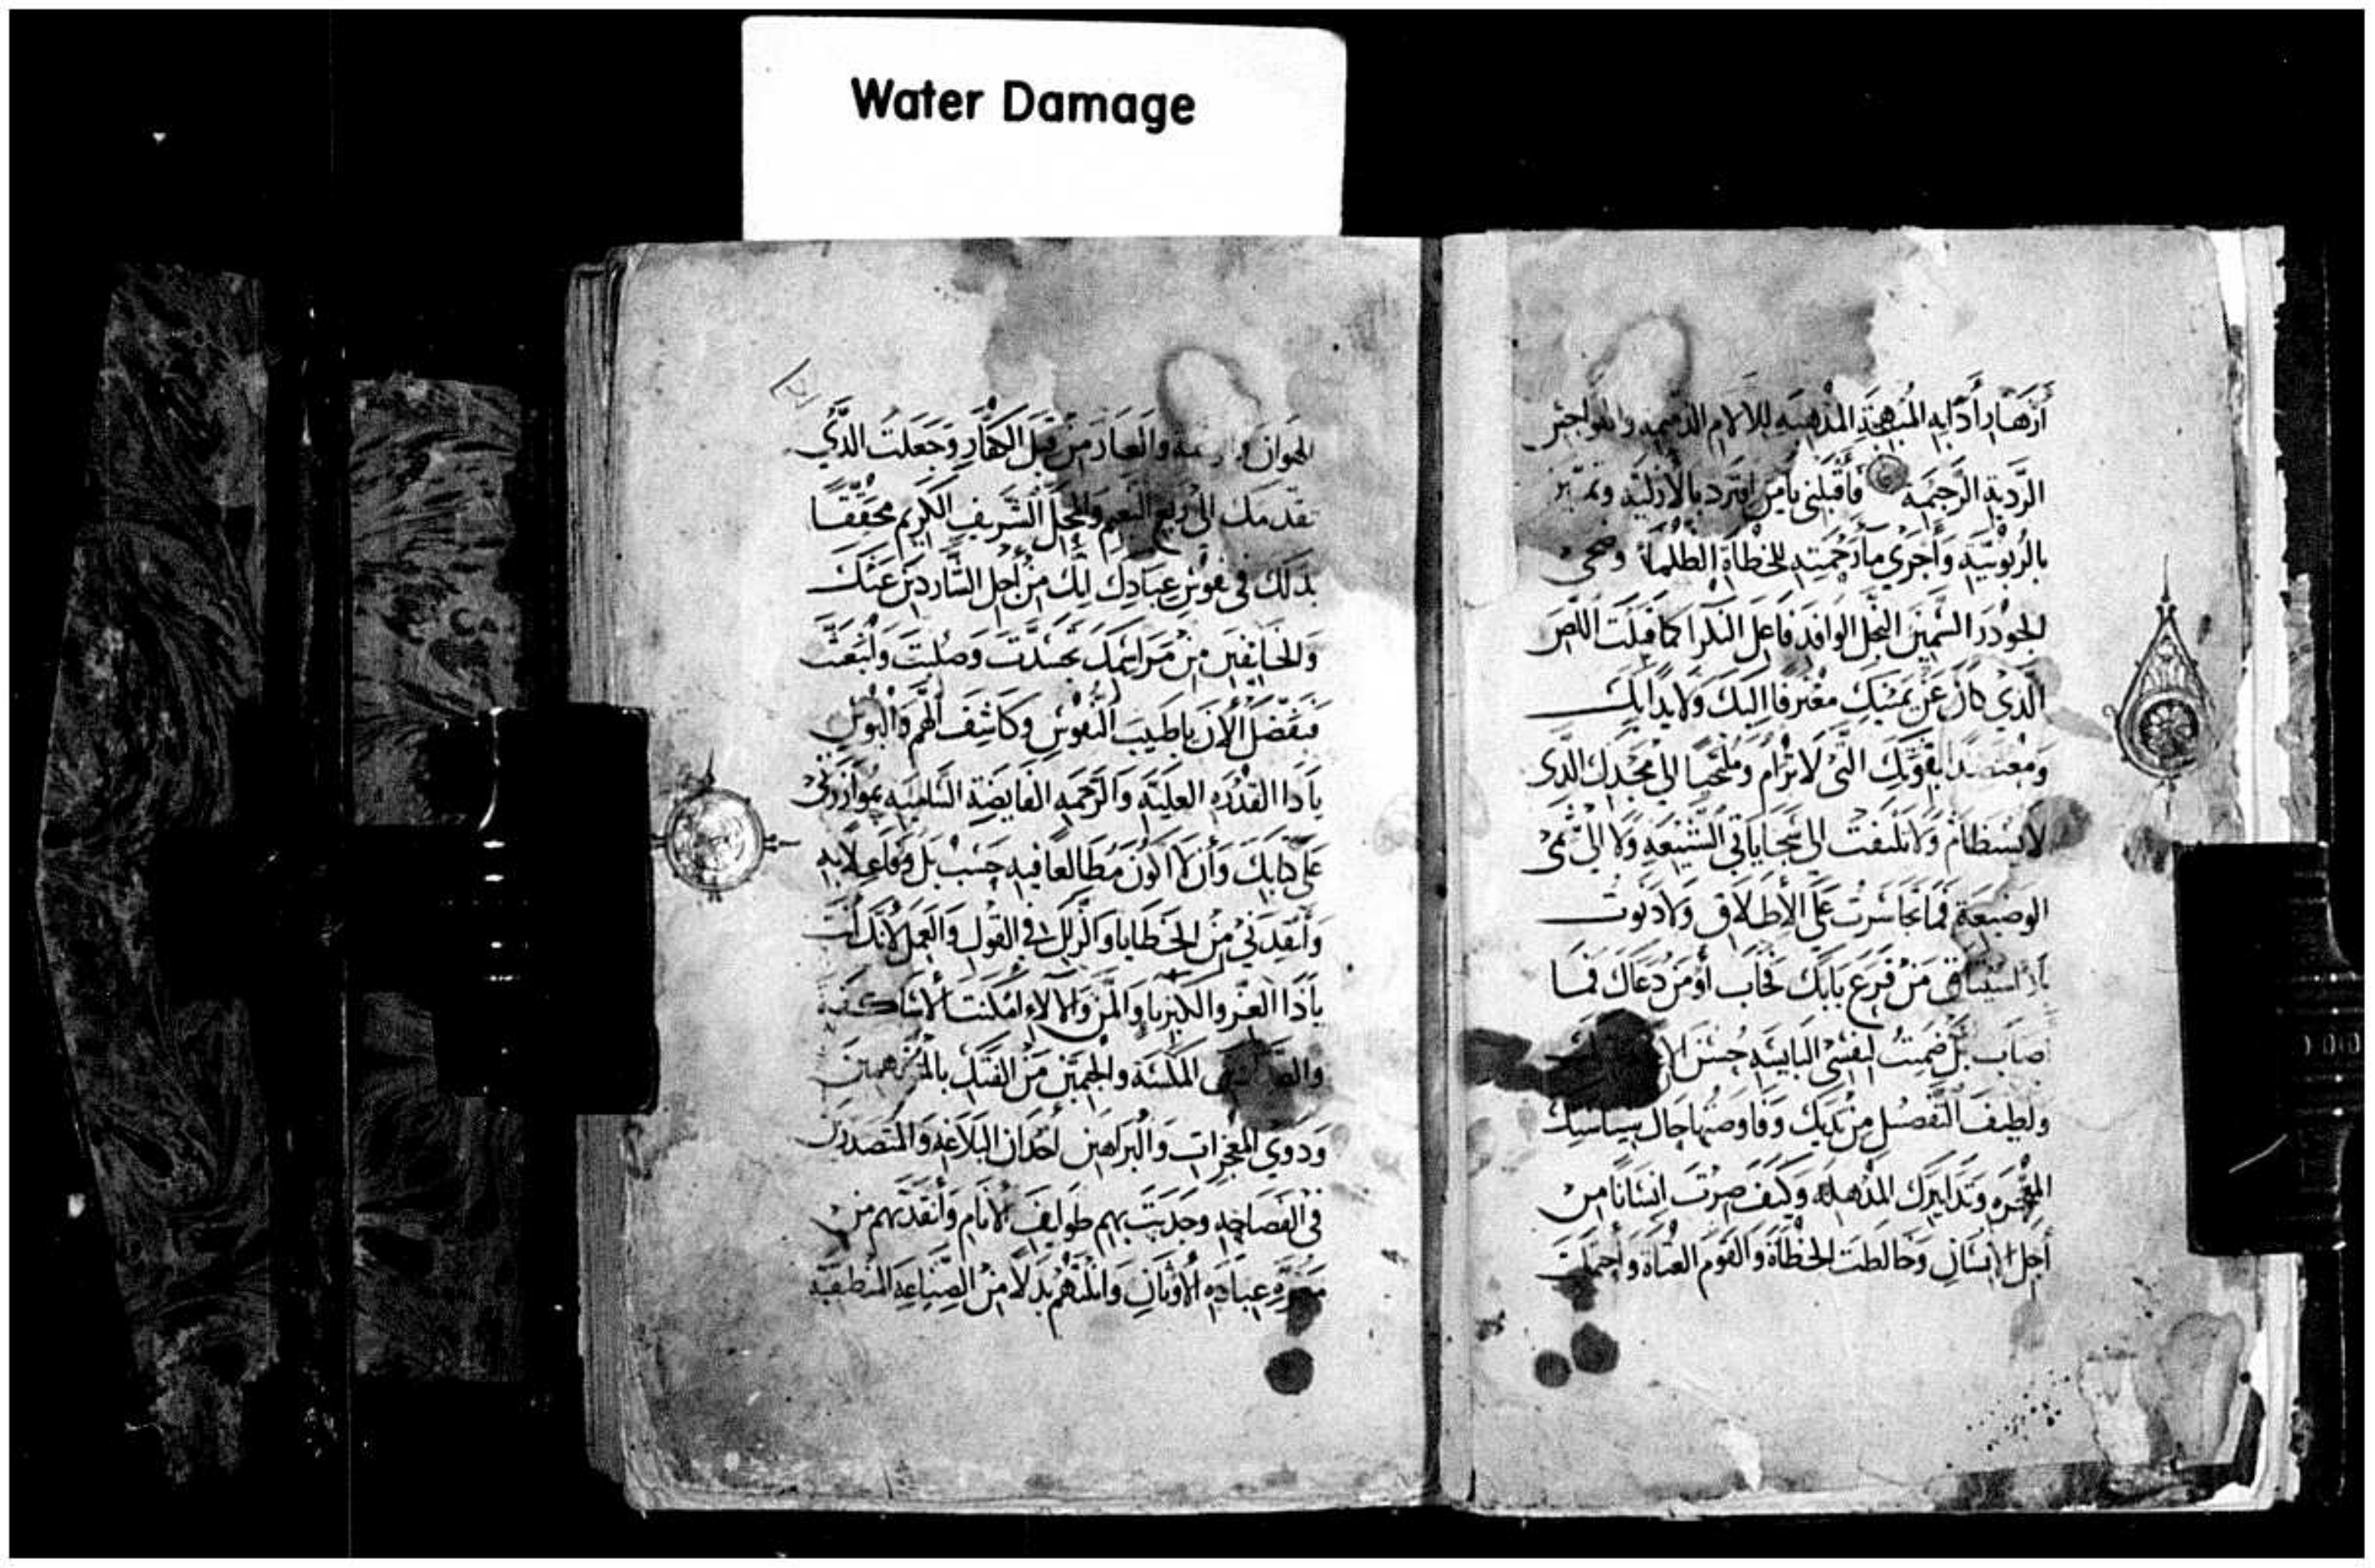 Water Damage
أزهار أدابه المبهجة المذهبه للالام الذميمه والمواجش
الردية الرجيمة فأقبلني يامن انفرد بالأزلية وتميز
بالربوبيه وأجري مأ رحمته للخطاة الظلما وضحي
الجودر السمين النجل الوافد فاعل النكرا كما قبلت اللص
الذي كان عن يمينك معترفا اليك ولايدا بك
بقوتك التي لا ترام وملتجيا الي مجدك الذي
لا يستظام ولا تلتفت الي سجاياتي الشنيعه ولا الي
الوضيعة فما تجاسرت علي الإطلاق ولا دنوت
من قرع بابك فخاب أو من دعاك فما
صاب بل ضمنت لنفسي البايسه حسن
ولطيف التفضل من لديك وفاوضتها حال بسياستك
المعجزه وتدابيرك المذهله وكيف صرت انسانا من
أجل الإنسان وخالطت الخطاة والقوم العتاة وأحتملت
الهوان والعار من قبل الكفار وجعلت الذي
تقدمك الي رفيع النعيم والمحل الشريف الكريم محققا
بذلك في نفوس عبادك انك من أجل الشاردين عنك
والخايفين من مراسمك تجسدت وصلبت وانبعثت
فتفضل الأن ياطبيب النفوس وكاشف الهم والبوس
ياذا القدره العلية والرحمه الفايضة الساميه بموازرتي
علي كتابك وأن لا اكون مطالعا فيه حسب بل وفاعلا به
وأنقدني من الخطايا والزلل في القول والعمل لأنك أنت
ياذا العز والكبريا والمن والالاء امكنت الاساكفة
الملسنة والجمين من الفتك بالمترهمين
وذوي المعجزات والبراهين اخدان البلاغه والمتصدرين
في الفصاحه وجدبت بهم طوايف الانام وأنقذتهم من
عباده الأوثان وانلتهم بدلا من الصناعه المنطقية